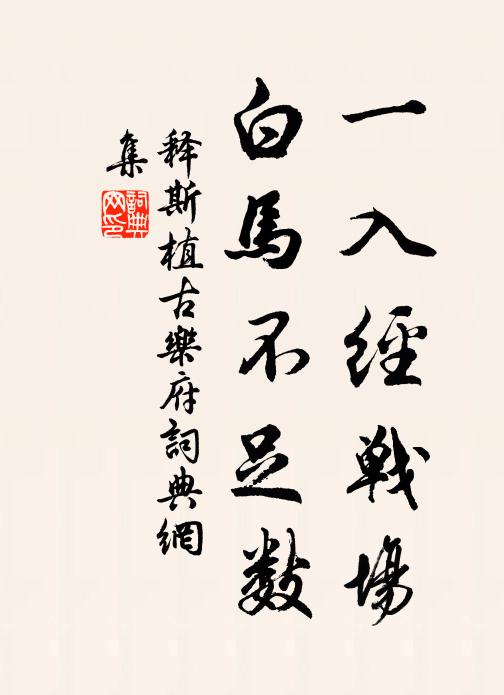 一入經戰場
白馬不足數
释斯植古樂府詞典網
集
詞典網印